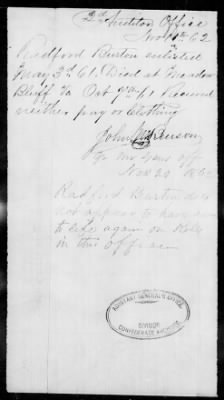 2d Auditor Office
Nov 11th 62
Radford Burton enlisted
May 3d 61. Died at Meadow
Bluff Va Oct 61 received
neither pay or clothing
John
for
Nov 20 1862
Radford Burton does
not appear to have
again on Rolls
in this office
ADJUTANT GENERAL'S OFFICE
DIVISION
CONFEDERATE ARCHIVES